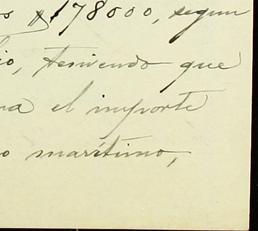 $178000, segun
io, teniendo que
a el importe
o marítimo,